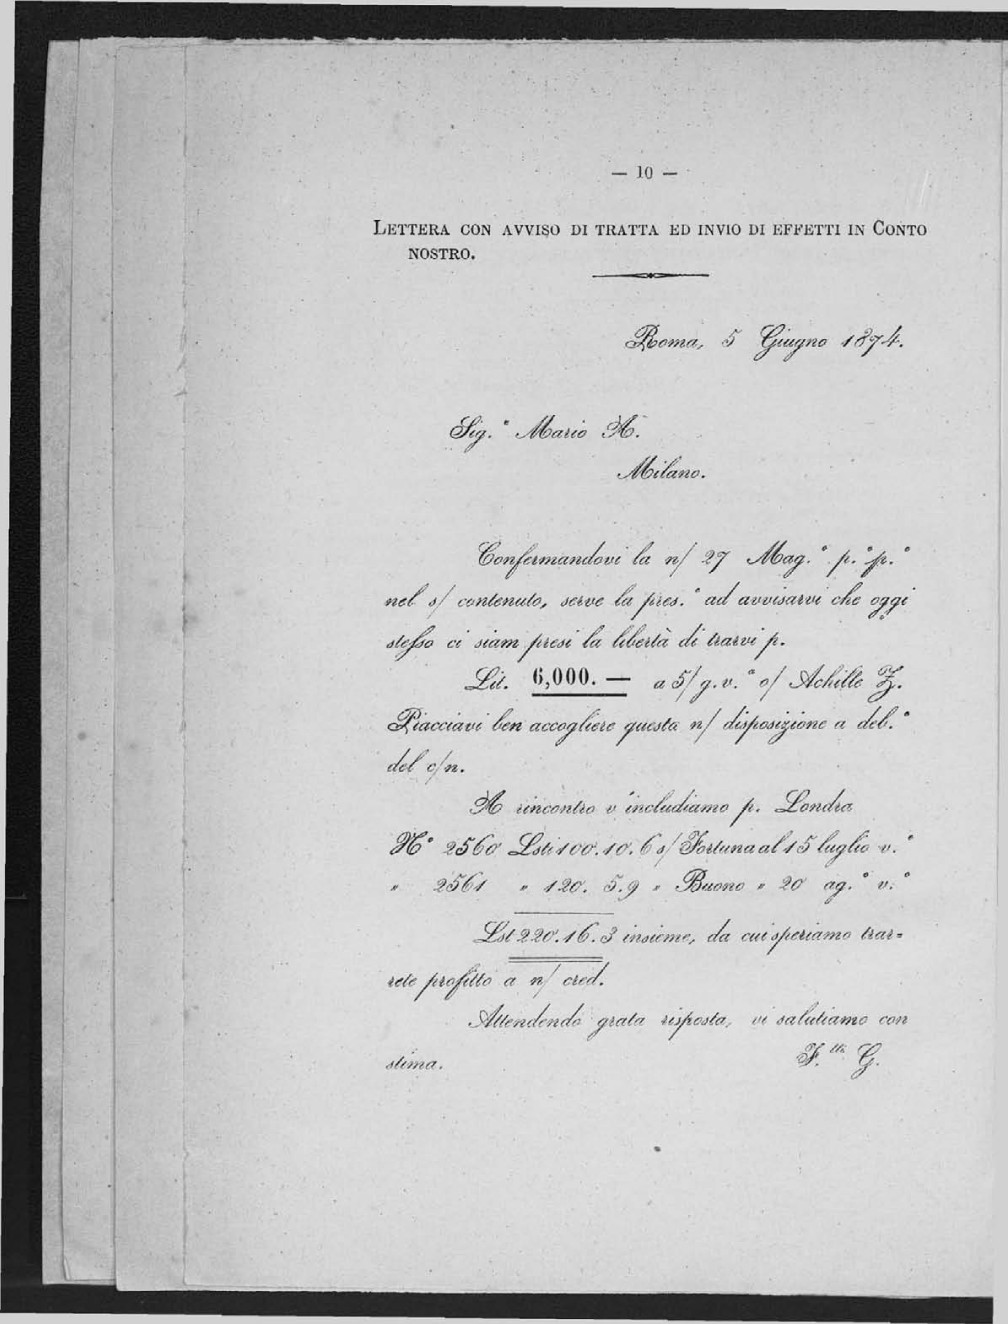 — 10 —
LETTERA CON AVVISO DI TRATTA ED INVIO DI EFFETTI IN CONTO
NOSTRO.
Roma, 5 Giugno 1874.
Sig.° Mario A.
Milano.
Confermandovi la n/ 27 Mag.° p.° p.°
nel s/ contenuto, serve la pres.° ad avvisarvi che oggi
stesso ci siam presi la libertà di trarvi p.
Lit. 6,000. — a 5/ g. v.ª o/ Achille Z.
Piacciavi ben accogliere questa n/ disposizione a deb.°
del c/n.
A rincontro v'includiamo p. Londra
N° 2560 Lsti 100. 10. 6 s/ Fortuna al 15 luglio v.°
„ 2561 „ 120. 5. 9 „ Buono „ 20 ag.° v.°
Lst 220. 16. 3 insieme, da cui speriamo trar=
rete profitto a n/ cred.
Attendendo grata risposta, vi salutiamo con
stima. F.lli G.